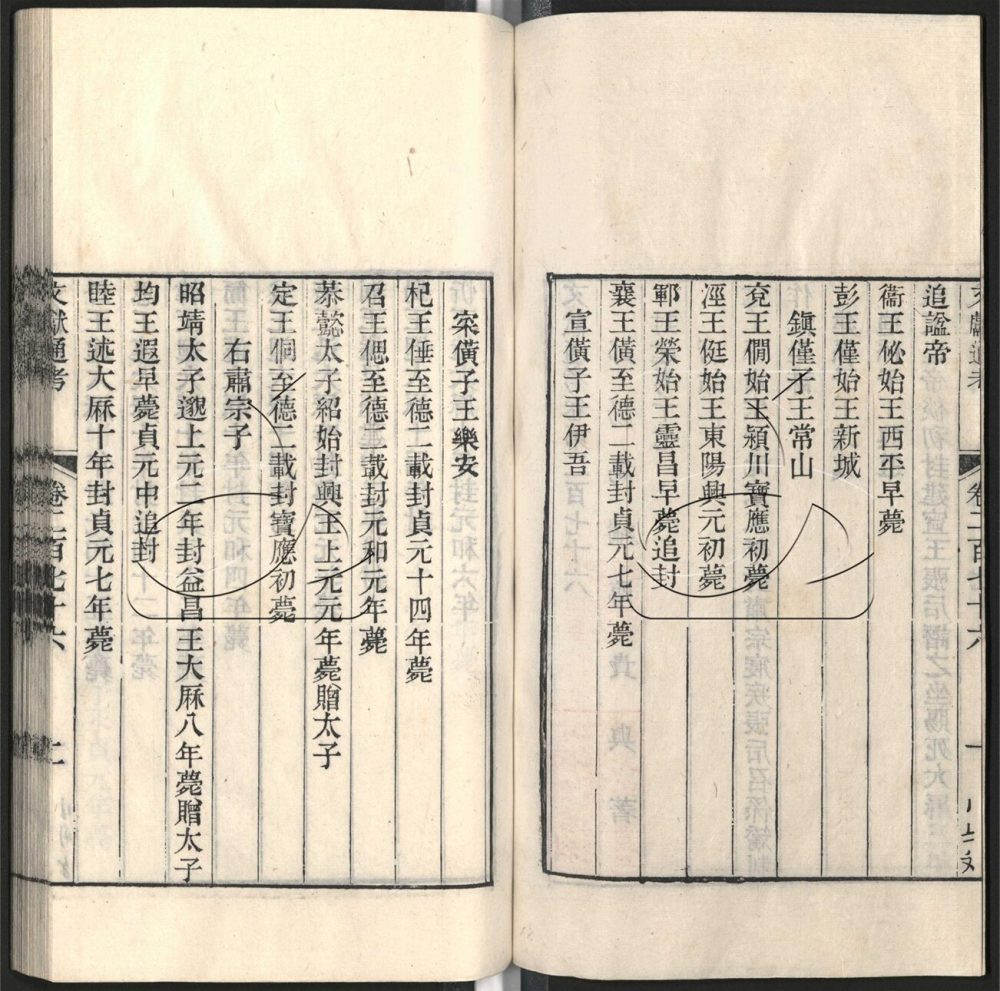 追諡帝
衞王佖始王西平早薨
彭王僅始王新城
鎮僅子王常山
兗王僩始王潁川寶應初薨
涇王侹始王東陽興元初薨
鄆王榮始王靈昌早薨追封
襄王僙至德二載封貞元七年薨
宣僙子王伊吾
宷僙子王樂安
杞王倕至德二載封貞元十四年薨
召王偲至德二載封元和元年薨
恭懿太子紹始封興王上元元年薨贈太子
定王侗至德二載封寶應初薨
右肅宗子
昭靖太子邈上元二年封益昌王大厤八年薨贈太子
均王遐早薨貞元中追封
睦王述大厤十年封貞元七年薨
文獻通考 卷二百七十六 二